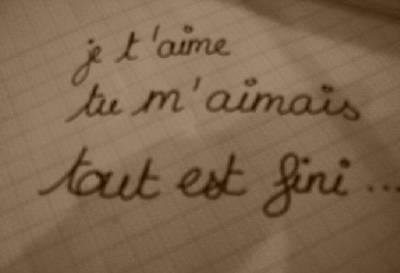 je t'aime
tu m'aimais
tout est fini...